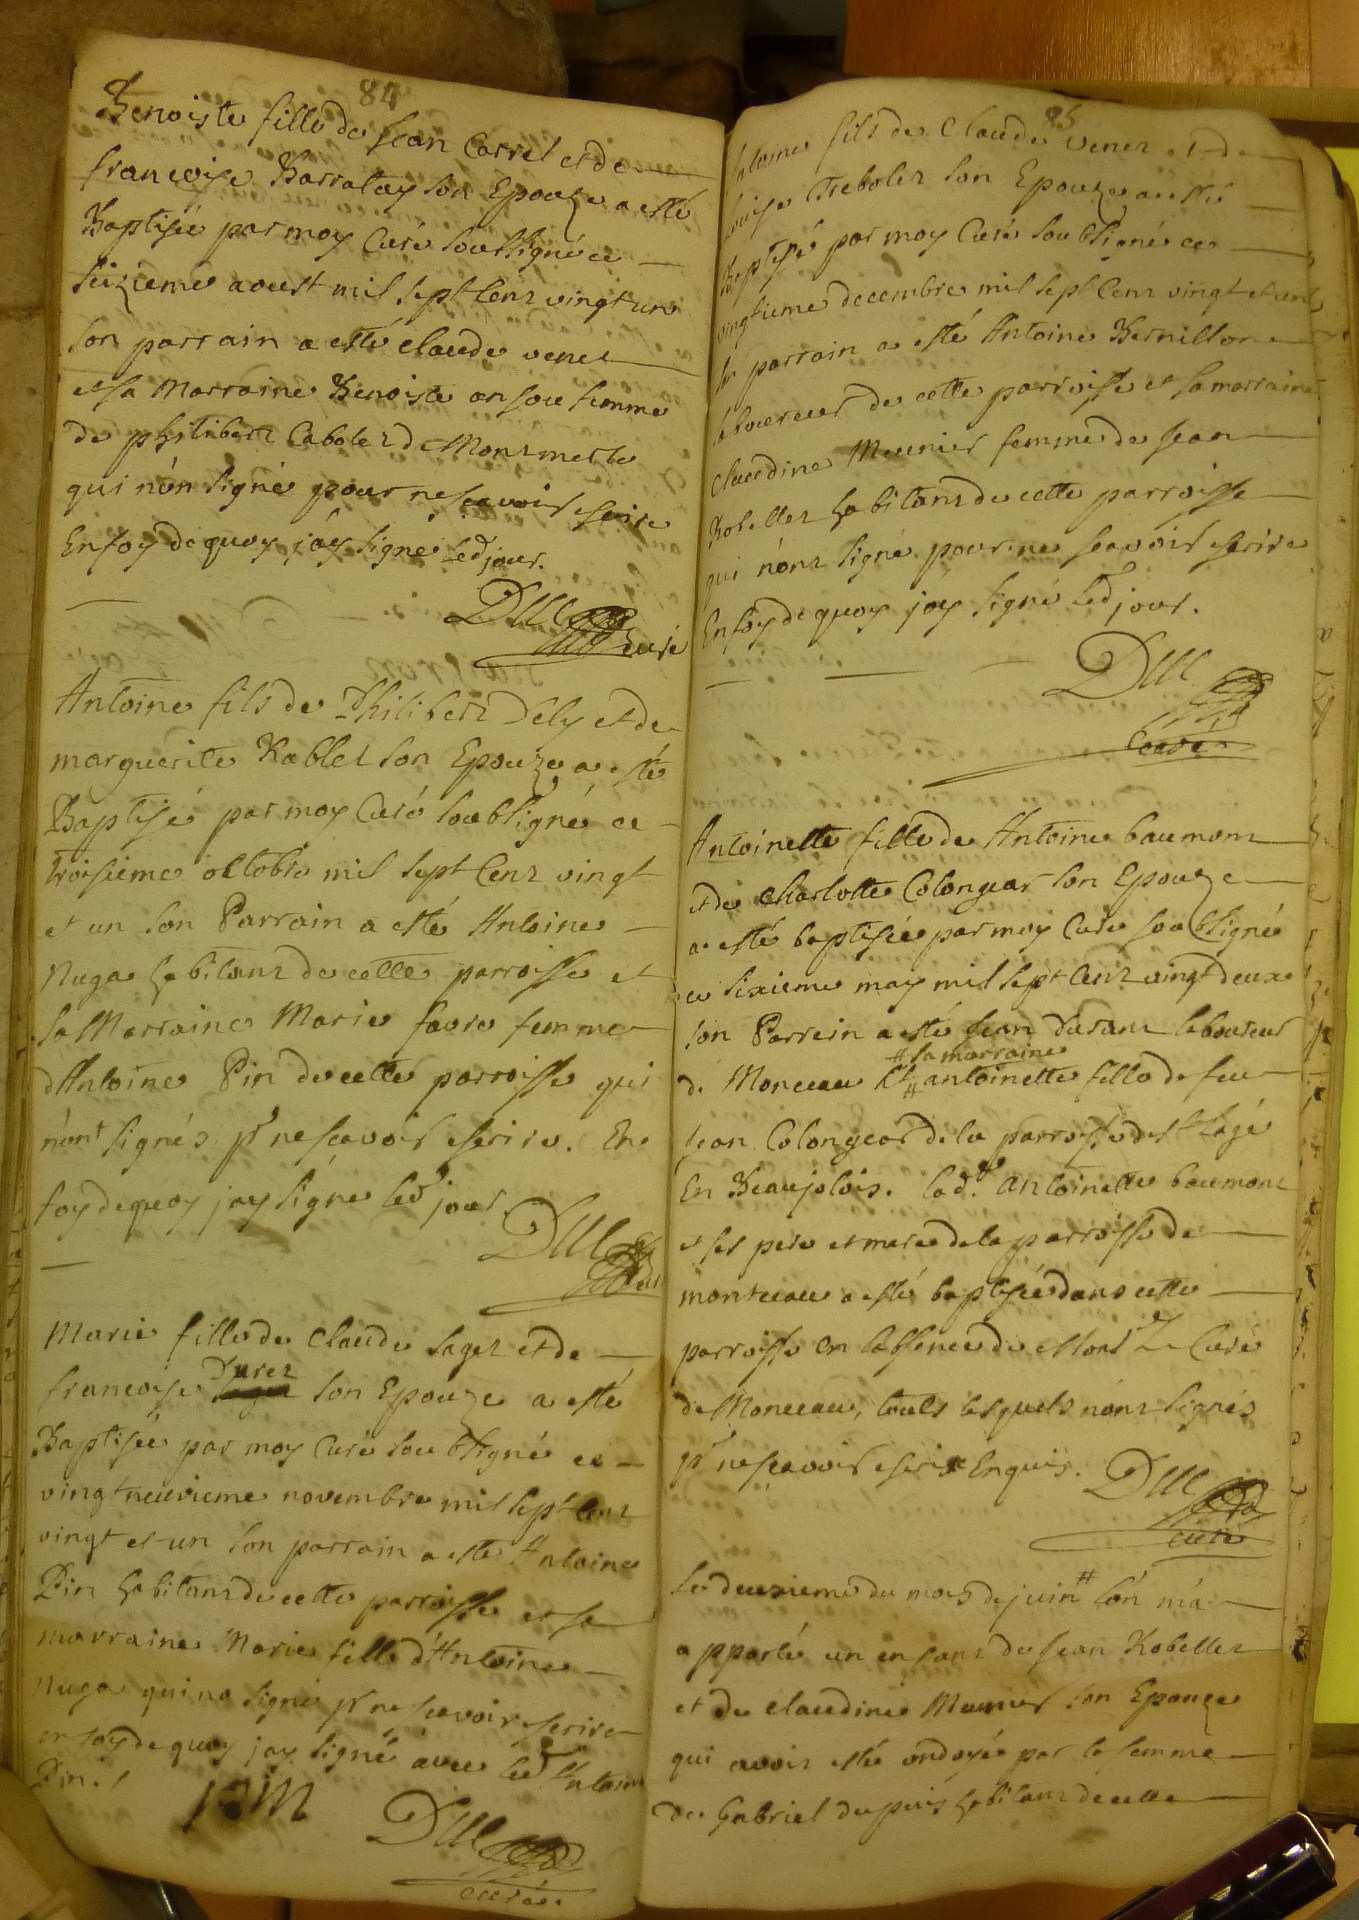 84
Benoiste fille de Jean Carrel et de
francoise Barratay son Epouze a esté
Baptisée par moy Curé soubsigné ce
seizieme aoust mil sept cent vingt un
son parrain a esté claude venet
et sa Marraine Benoiste femme
de philibert Cabolet de
qui n'on signé pour ne scavoir escrire
En foy de quoy j'ay signé led jour.
Duc
Curé
Antoine fils de Philibert Dely et de
marguerite Rabllet son Epouze a esté
Baptisé par moy Curé soubsigné ce
troisieme octobre mil sept Cent vingt
et un son Parrain a esté Antoine
Nuga habitant de cette parroisse et
sa Marraine Marie favre femme
d'Antoine Pin de cette parroisse qui
n'ont signés pr ne scavoir escrire. En
foy de quoy j'ay signé led jour
Duc
Marie fille de Claude Saget et de
francoise Duret son Epouze a esté
Baptisée par moy Curé soubsigné ce
vingt neuvieme novembre mil sept cent
vingt et un son parrain a esté Antoine
Pin habitant de cette parroisse et sa
marraine Marie fille d'Antoine
Nuga qui na signé pr ne scavoir escrire
en foy de quoy j'ay signé avec led Antoine
Pin.
pin
Duc
curé
85
fils de Claude venet et de
louise Trebolet son Epouze a esté
Baptisé par moy Curé soubsigné ce
vingtieme decembre mil sept Cent vingt et un
son parrain a esté Antoine Bernillon
laboureur de cette parroisse et sa marraine
Claudine Meunier femme de Jean
Robellet habitant de cette parroisse
qui n'ont signé pour ne scavoir escrire
En foy de quoy j'ay signé led jour.
Duc
Curé
Antoinette fille de Antoine baumont
et de Charlotte Colongeat son Epouze
a esté baptisée par moy Curé soubsigné
ce sixieme may mil sept Cent vingt deux
son Parrein a esté Jean durant laboureur
# sa marraine
de Monceau Et # antoinette fille de feu
Jean Colongeat de la parroisse de st Lagé
En Beaujolois. lad. Antoinette baumont
et ses pere et mere de la parroisse de
montceau a esté baptisée dans cette
parroisse en l'absence de Mons Le Curé
de Monceau, touts lesquels n'ont signés
pr ne scavoir escrire Enquis.
Duc
curé
Le deuxieme du mois de juin # l'on m'a
apporté un enfant de Jean Robellet
et de claudine Meunier son Epouze
qui avoit esté ondoyé par la femme
de Gabriel dupuis habitant de cette